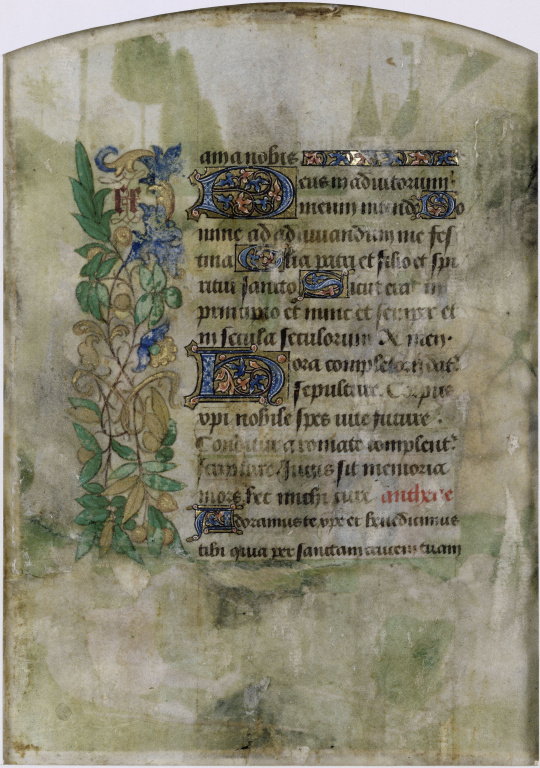 ama nobis
Deus in adiutorium
meum intende Do
mine ad adiuuandum me fes
tina Glia patri et filio et spi
ritui sancto Sicut erat in
principio et nunc et semper et
in secula seculorum Amen.
Hora completorii datr
sepulture. Corpus
xpi nobile spes uite future.
Conditur aromate complent
scripture Iugis sit memoria
mors hec michi cure antheine
Adoramus te xpe et benedicimus
tibi quia per sanctam crucem tuam